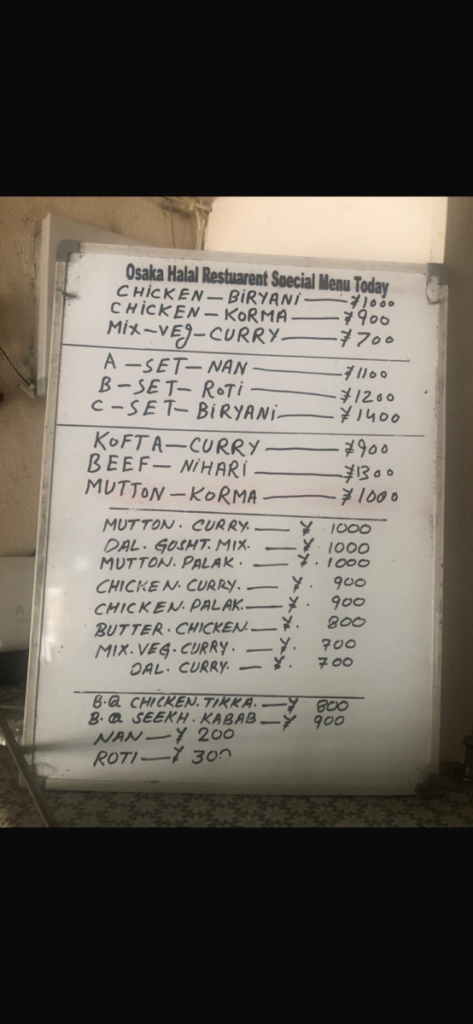 Osaka Halal Restuarent Special Menu Today
CHICKEN — BIRYANI — ¥1000
CHICKEN — KORMA — ¥900
MIX — VEG — CURRY — ¥700
A — SET — NAN — ¥1100
B — SET — ROTI — ¥1200
C — SET — BIRYANI — ¥1400
KOFTA — CURRY — ¥900
BEEF — NIHARI — ¥1300
MUTTON — KORMA — ¥1000
MUTTON. CURRY. — ¥. 1000
DAL. GOSHT. MIX. — ¥. 1000
MUTTON. PALAK. — ¥. 1000
CHICKEN. CURRY. — ¥. 900
CHICKEN. PALAK. — ¥. 900
BUTTER. CHICKEN. — ¥. 800
MIX. VEG. CURRY. — ¥. 700
DAL. CURRY. — ¥. 700
B.Q CHICKEN. TIKKA. — ¥ 800
B.Q SEEKH. KABAB — ¥ 900
NAN — ¥ 200
ROTI — ¥ 300